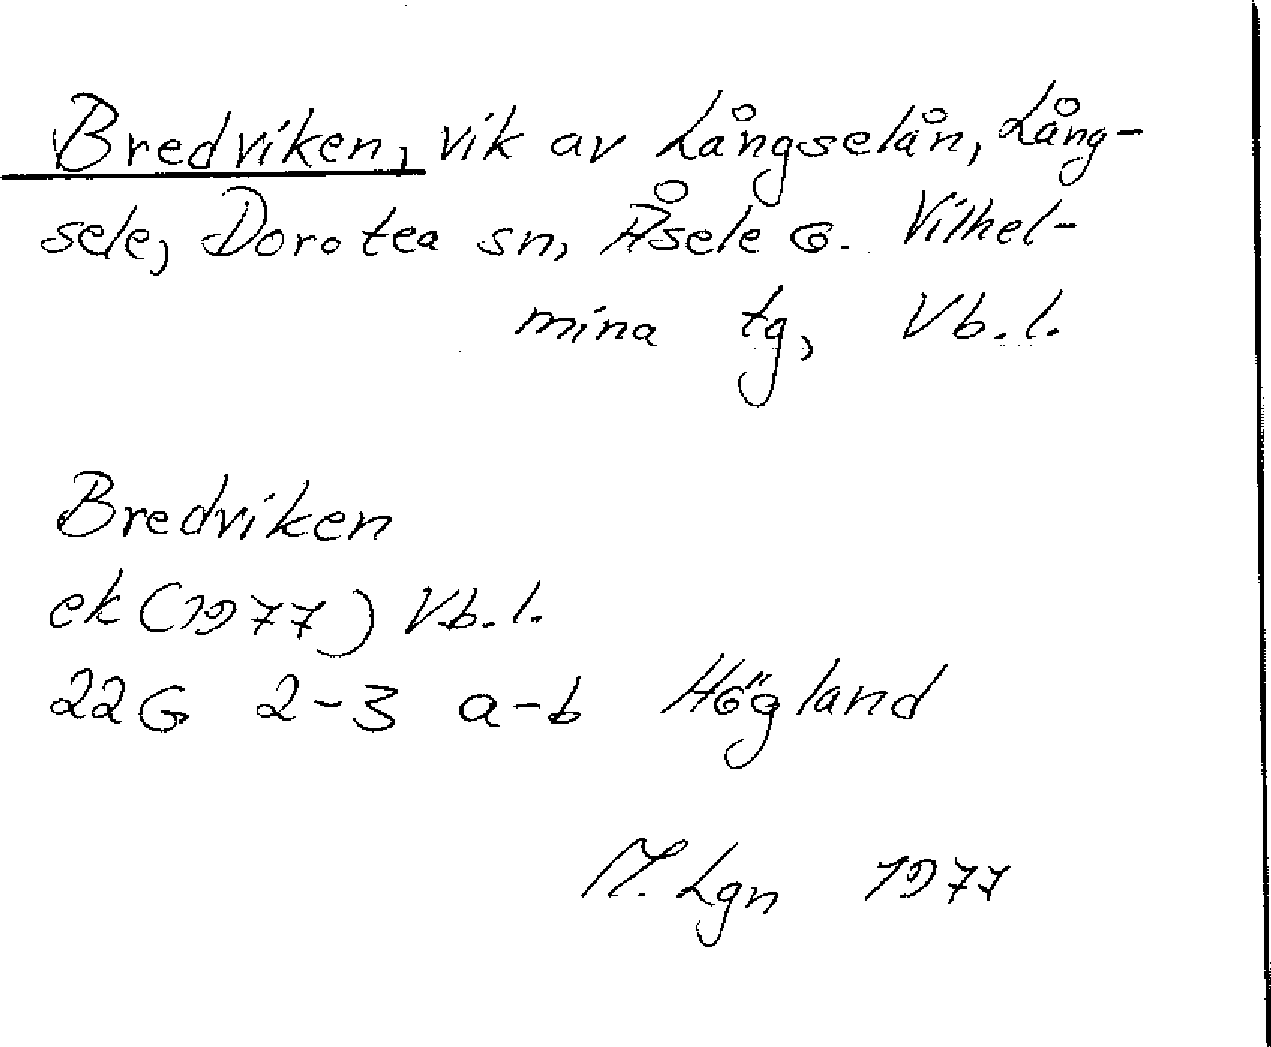 Bredviken, vik av Långselån, Lång-
sele, Dorotea sn, Åsele G. Vilhel-
mina tg, Vb.l.
Bredviken
ek (1977) Vb.l.
22G 2-3 a-b Högland
M. Lgn 1977